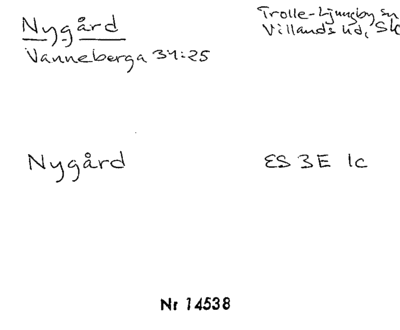 Nygård
Trolle-Ljungby sn
Villands hd, Sk
Vanneberga 34:25
Nygård
ES 3E 1c
Nr 14538